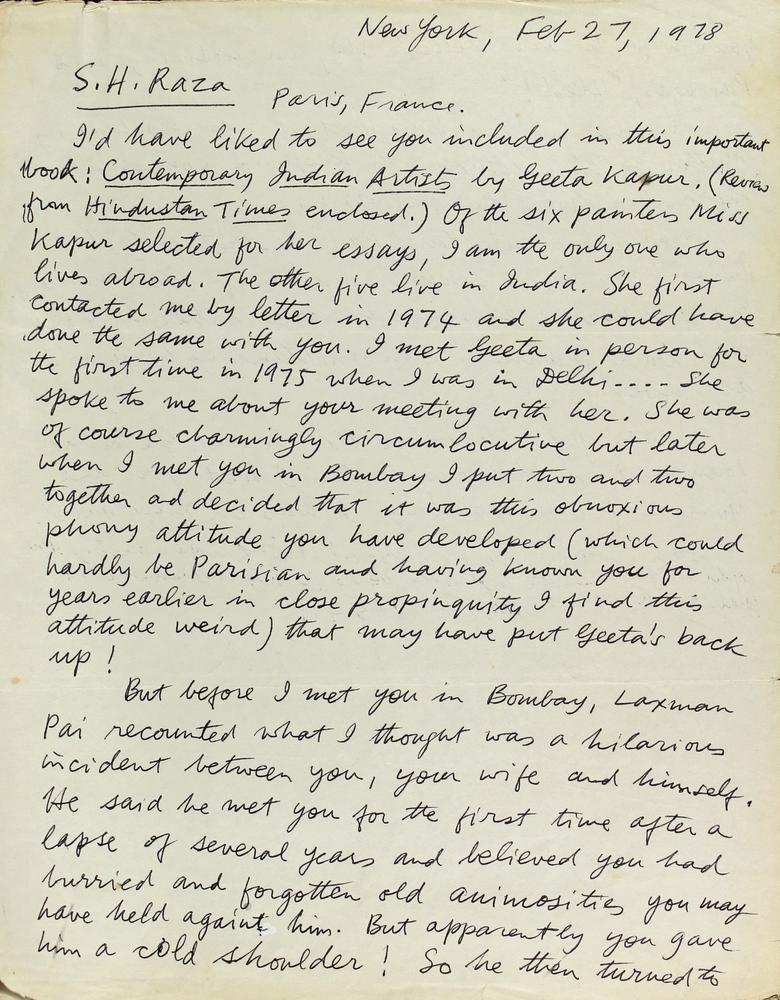 New York, Feb 27, 1978
S.H. Raza
Paris, France.
I'd have liked to see you included in this important
book: Contemporary Indian Artists by Geeta Kapur. (Review
from Hindustan Times enclosed.) Of the six painters Miss
Kapur selected for her essays, I am the only one who
lives abroad. The other five live in India. She first
contacted me by letter in 1974 and she could have
done the same with you. I met Geeta in person for
the first time in 1975 when I was in Delhi.... She
spoke to me about your meeting with her. She was
of course charmingly circumlocutive but later
when I met you in Bombay I put two and two
together and decided that it was this obnoxious
phony attitude you have developed (which could
hardly be Parisian and having known you for
years earlier in close propinquity I find this
attitude weird) that may have put Geeta's back
up!
But before I met you in Bombay, Laxman
Pai recounted what I thought was a hilarious
incident between you, your wife and himself.
He said he met you for the first time after a
lapse of several years and believed you had
burried and forgotten old animosities you may
have held againt him. But apparently you gave
him a cold shoulder! So he then turned to